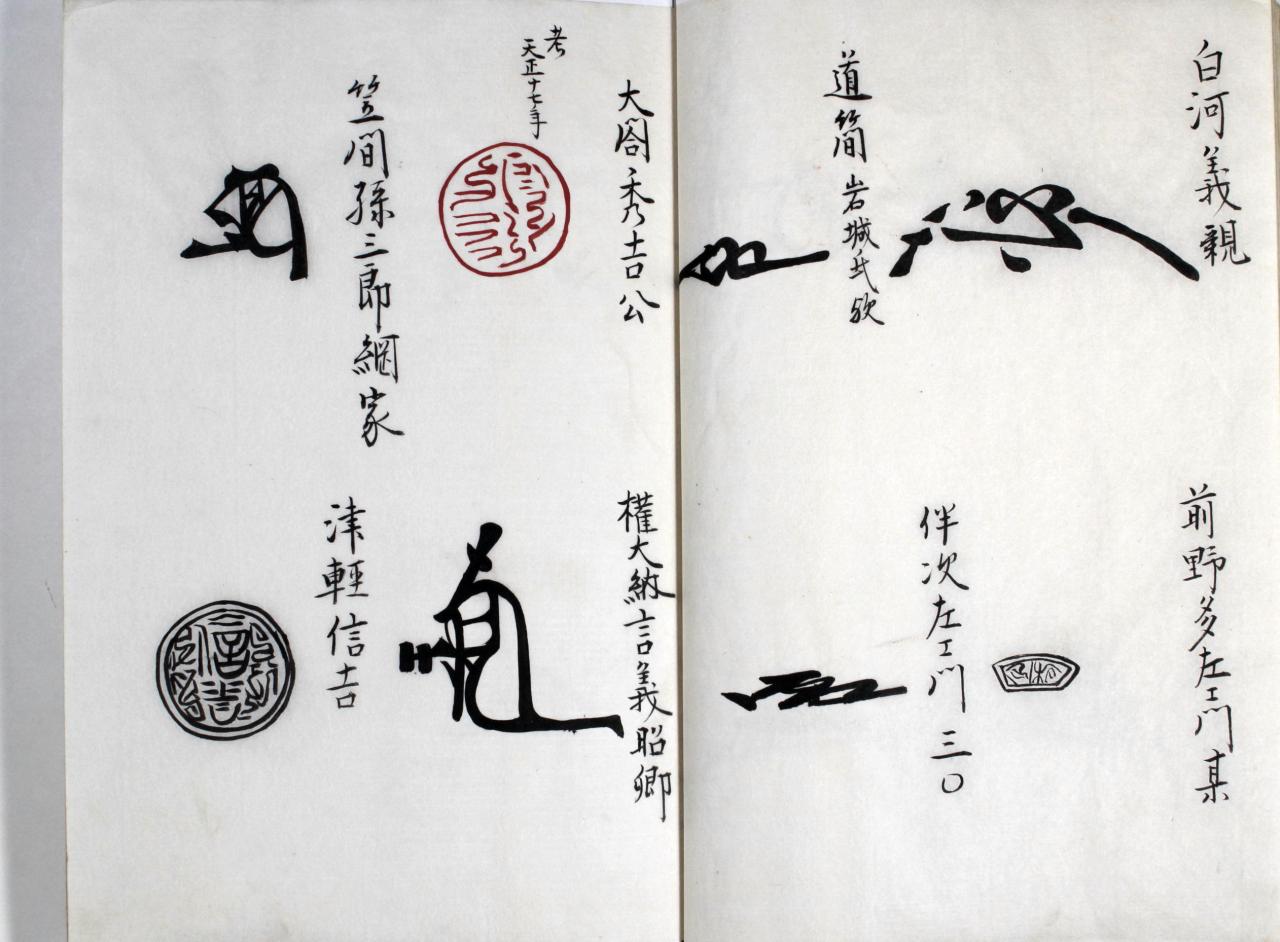 白河義親
道簡 岩城氏欤
前野多左エ門某
伴次左エ門三〇
大閤秀吉公
考
天正十七年
笠間孫三郎綱家
權大納言義昭卿
津輕信吉